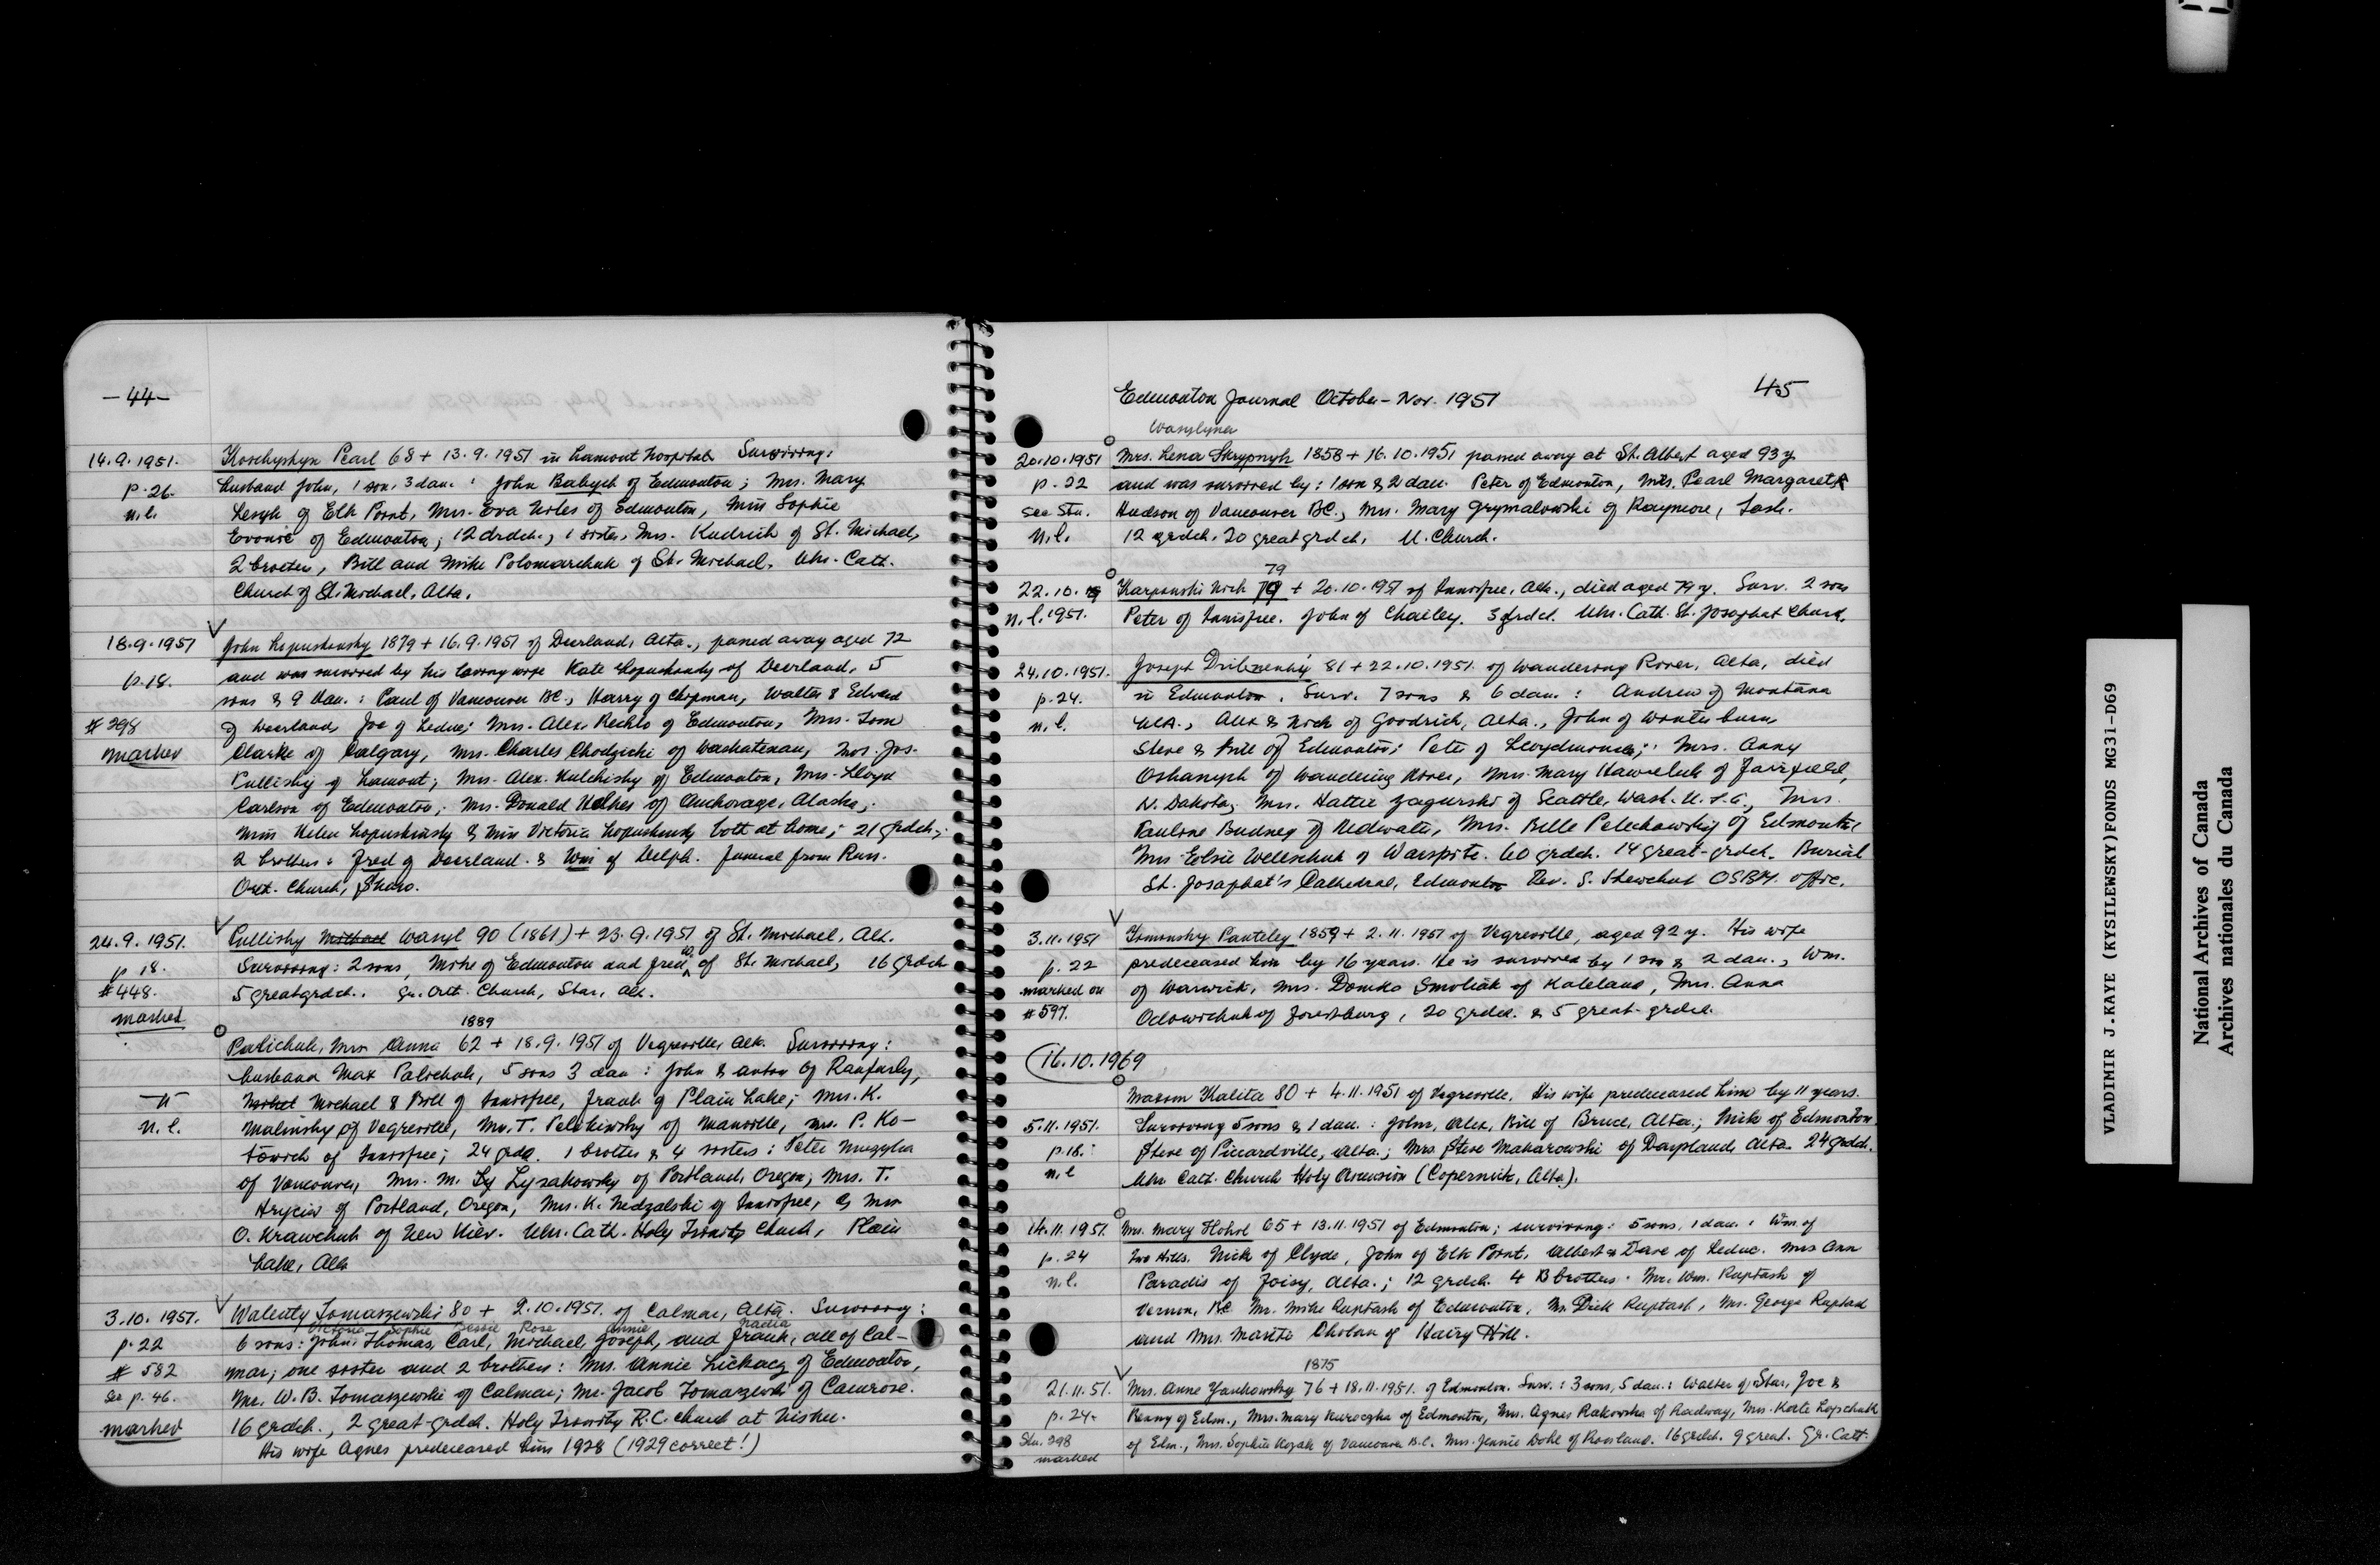 — 44 —
14.9.1951. Koschyshyn Pearl 68 + 13.9.1951 in Lamont hospital. Surviving:
p. 26. husband John, 1 son, 3 dau. : John Babych of Edmonton; Mrs. Mary
n.l. Lesyk of Elk Point, Mrs. Eva Holes of Edmonton, Miss Sophie
of Edmonton; 12 drdch., 1 sister, Mrs. Kudrich of St. Michael,
2 broters, Bill and Mike Polomarchuk of St. Michael. Ukr. Cath.
Church of St. Michael, Alta.
18.9.1951 John Lopushinsky 1879 + 16.9.1951 of Deerland, Alta., passed away aged 72
p. 18. and was survived by his loving wife Kate Lopushinsky of Deerland, 5
sons & 9 dau. : Paul of Vancouver BC., Harry of Chipman, Walter & Edward
# 298 of Deerland, Joe of Leduc; Mrs. Alex. Rechlo of Edmonton, Mrs. Tom
marked Clarke of Calgary, Mrs. Charles Chodzicki of Waskatenau, Mrs. Jos.
Pullishy of Lamont; Mrs. Alex. Hulchisky of Edmonton, Mrs. Lloyd
Carlson of Edmonton; Mrs. Donald of Anchorage, Alaska;
Miss Helen Lopushinsky & Miss Victoria Lopushinsky both at home; 21 grdch.;
2 brothers: Fred of Deerland & Wm of Delph. Funeral from Russ.
Ort. Church, Skaro.
24.9.1951. Pullishy Michael Wasyl 90 (1861) + 23.9.1951 of St. Michael, Alt.
p 18. Surviving: 2 sons, Mike of Edmonton and Fred, of St. Michael, 16 grdch
#448. 5 greatgrdch.. Gr. Orth. Church, Star, Alt.
marked
1889
Palichuk, Mrs Anna 62 + 18.9.1951 of Vegreville, Alt. Surviving:
husband Max Palichuk, 5 sons 3 dau : John & Anton of Ranfurly,
Michael & Bill of Innisfree, Frank of Plain Lake; Mrs. K.
n.l. Malinsky of Vegreville, Mrs. T. of Manville, Mrs. P. Ko-
towich of Innisfree; 24 grdd. 1 brother & 4 sisters : Peter
of Vancouver, Mrs. M. Ly Lysakowsky of Portland, Oregon; Mrs. T.
Hryciw of Portland, Oregon, Mrs. K. Nedzalski of Innisfree, & Mrs
O. Krawchuk of New Kiev. Ukr. Cath. Holy Trinity Church, Plain
Lake, Alta
3.10.1951. Walenty Tomaszewski 80 + 2.10.1951. of Calmar, Alta. Surviving:
Victoria Sophie Bessie Rose Annie Nadia
p. 22 6 sons: John, Thomas, Carl, Michael, Joseph, and Frank, all of Cal-
# 582 mar; one sister and 2 brothers: Mrs. Annie Lickacz of Edmonton,
See p. 46. Mr. W. B. Tomaszewski of Calmar; Mr. Jacob Tomaszewski of Camrose.
marked 16 grdch., 2 great-grdch. Holy Trinity R.C. church at Nisku.
His wife Agnes predeceased him 1928 (1929 correct!)
45
Edmonton Journal October – Nov. 1951
Wasylyna
20.10.1951 Mrs. Lena Skrypnyk 1858 + 16.10.1951 passed away at St. Albert aged 93 y
p. 22 and was survived by : 1 son & 2 dau. Peter of Edmonton, Mrs. Pearl Margaret
see Stu. Hudson of Vancouver BC., Mrs. Mary Grymalowski of Raymore, Sask.
n.l. 12 grdch. 20 greatgrdch. U. Church.
79
22.10. Karpinski Nick + 20.10.1951 of Innisfree, Alta., died aged 79 y. Surv. 2 sons
n.l. 1951. Peter of Innisfree. John of Chailey. 3 grdch. Ukr. Cath. St. Josaphat Church.
24.10.1951. Joseph 81 + 22.10.1951. of Wandering River, Alta, died
p. 24. in Edmonton. Surv. 7 sons & 6 dau. : Andrew of Montana
n.l. USA., Alex & Nick of Goodrich, Alta., John of Winterburn
Steve & Bill of Edmonton; Peter of Lloydminster; Mrs. Anny
Oshanyk of Wandering River, Mrs. Mary Hawreluk of Fairfield,
N. Dakota, Mrs. Hattie Zagurski of Seattle, Wash. U.S.A., Mrs.
Pauline Budney of Redwater, Mrs. Belle Pelechowsky of Edmonton
Mrs Elsie Weleschuk of Warspite. 60 grdch. 14 great-grdch. Burial
St. Josaphat's Cathedral, Edmonton Rev. S. Shewchuk OSBM. offic.
3.11.1951 Tomashy Panteley 1859 + 2.11.1951 of Vegreville, aged 92 y. His wife
p. 22 predeceased him by 16 years. He is survived by 1 son & 2 dau., Wm.
marked on of Warwick, Mrs. Domka Smoliak of Kaleland, Mrs. Anna
# 597. Odowichuk of Forestburg, 20 grdch. & 5 great-grdch.
16.10.1969
Maxim Kalita 80 + 4.11.1951 of Vegreville. His wife predeceased him by 11 years.
5.11.1951. Surviving 5 sons & 1 dau. : John, Alex, Bill of Bruce, Alta.; Nick of Edmonton
p. 18. Steve of Piccardville, Alta.; Mrs Steve Makarowski of Daysland, Alta. 24 grdch.
n.l Ukr Cath. Church Holy Ascension (Copernick, Alta).
14.11.1951. Mrs. Mary Hohol 65 + 13.11.1951 of Edmonton; surviving: 5 sons, 1 dau. : Wm. of
p. 24 Two Hills. Nick of Clyde, John of Elk Point, Albert & Dave of Leduc. Mrs Ann
n.l. Paradis of Joisy, Alta.; 12 grdch. 4 brothers. Mr. Wm. Ruptash of
Vernon, BC Mr. Mike Ruptash of Edmonton, Mr. Dick Ruptash, Mr. George Ruptash
and Mrs. Martha Cholan of Hairy Hill.
1875
21.11.51. Mrs. Anne Yankowsky 76 + 18.11.1951. of Edmonton. Surv. : 3 sons, 5 dau.: Walter of Star, Joe &
p. 24. Benny of Edm., Mrs. Mary Kuroczka of Edmonton, Mrs. Agnes Rakowska of Radway, Mrs. Kate Lopschuk
Stu. 298 of Edm., Mrs. Sophie Kozak of Vancouver B.C. Mrs. Jennie Dohl of Rossland. 16 grdch. 9 great. Gr. Cath.
marked
VLADIMIR J.KAYE (KYSILEWSKY)FONDS MG31-D69
National Archives of Canada
Archives nationales du Canada